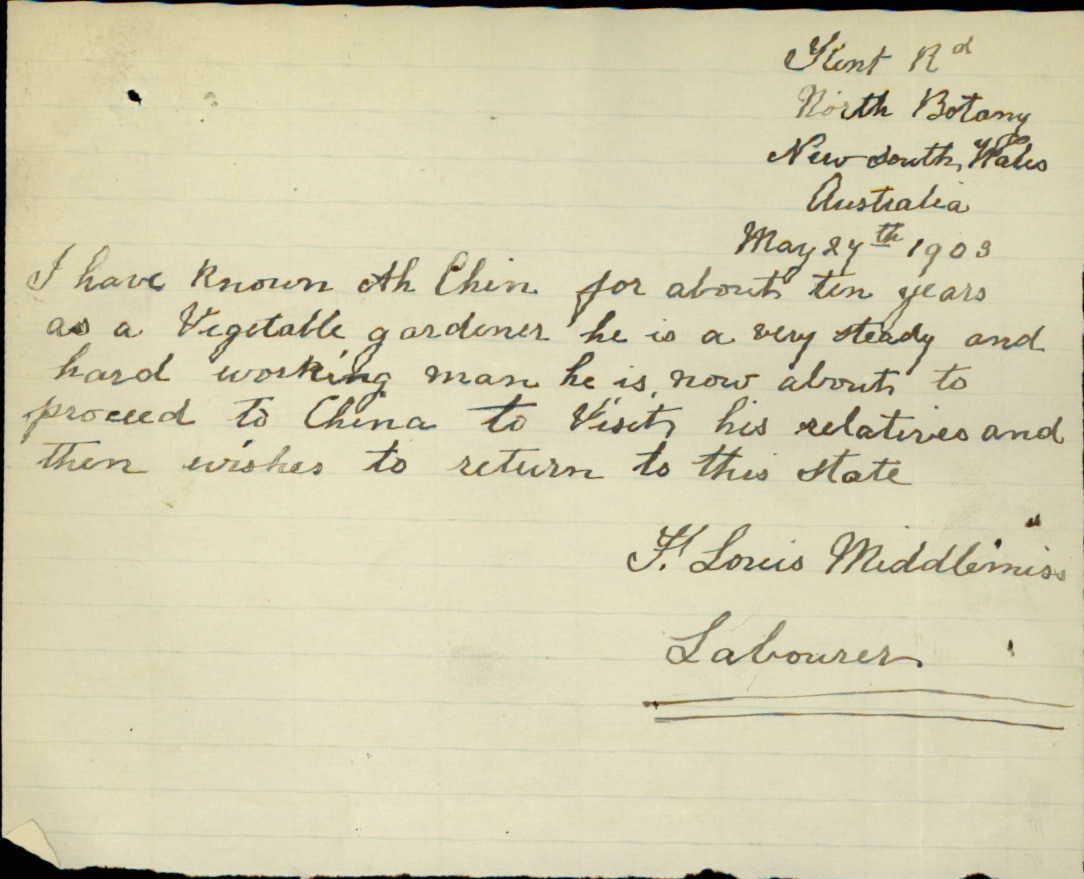 Kent Rd
North Botany
New South Wales
Australia
May 27th 1903
I have known Ah Chin for about ten years
as a Vegetable gardener he is a very steady and
hard working man he is now about to
proceed to China to Visit his relatives and
then wishes to return to this state
F. Louis Middlemiss
Labourer